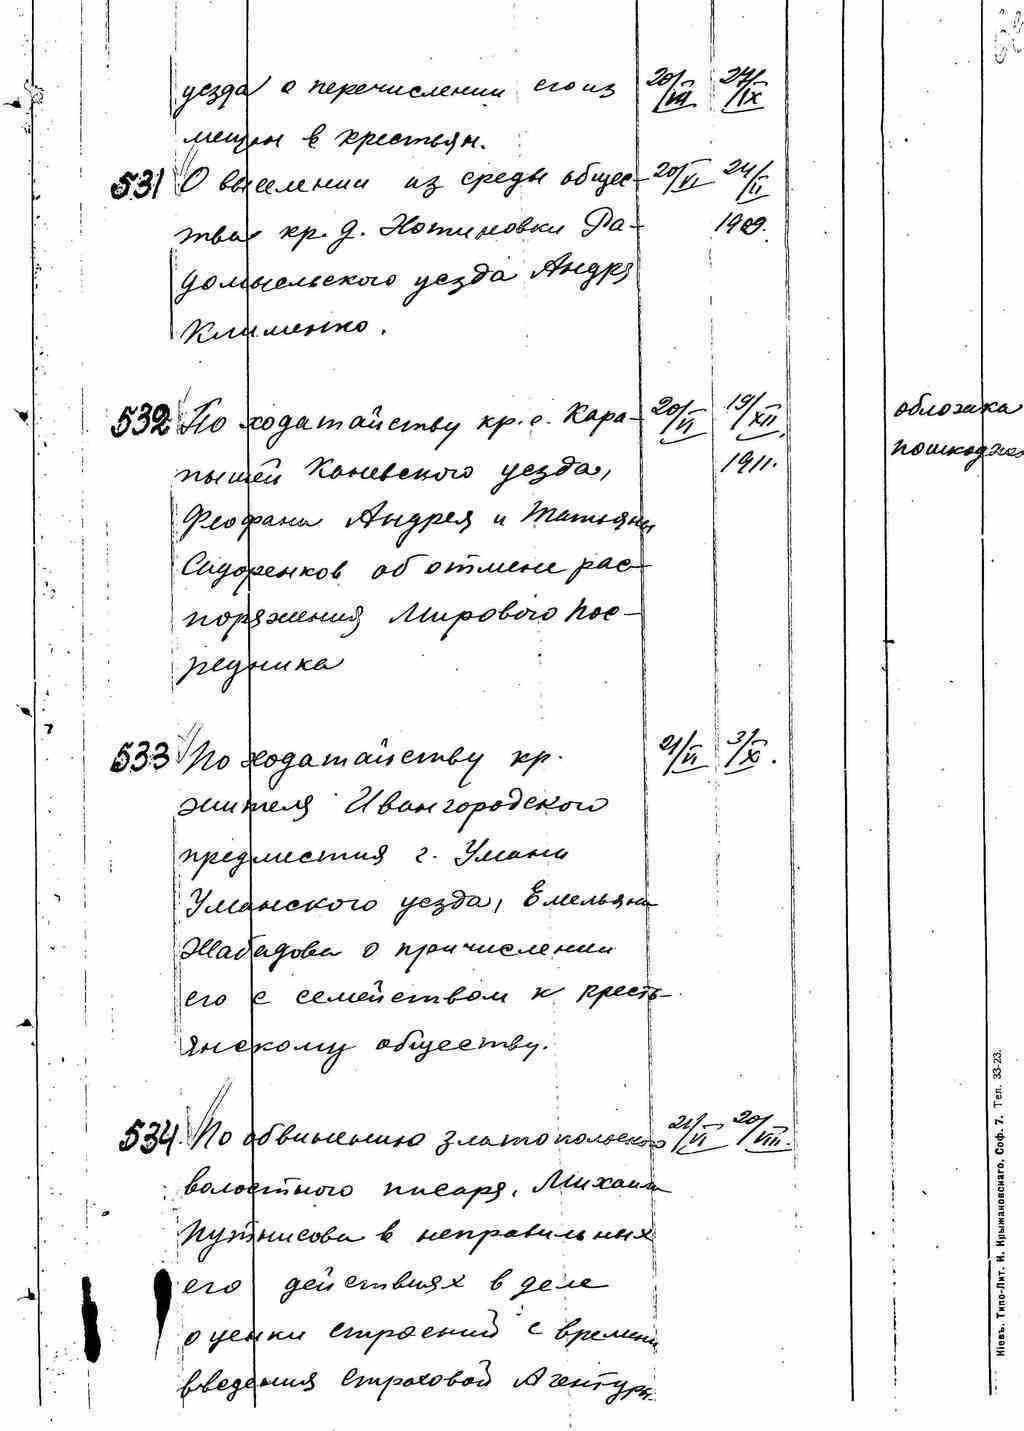 уезда о перечислении его из 20/VII 27/IX
мещан в крестьян.
531 О выселении из среды общес- 20/VI 24/II
тва кр. д. Нотиновки Ра- 1909.
домысльского уезда Андрея
Клименко.
532 По ходатайству кр. с. Кара- 20/VI 19/XII обложка
пышей Каневского уезда, 1911. пошкоджена
Феофана Андрея и Татьяны
Сидоренков об отмене рас-
поряжения Мирового пос-
редника
533 По ходатайству кр. 21/VI 3/XI.
жителя Ивангородского
предместия г. Умани
Уманского уезда, Емельяна
Шабадова о причислении
его с семейством к кресть-
янскому обществу.
534. По обвинению Златопольского 21/VI 20/VIII.
волостного писаря, Михаила
в неправильных
его действиях в деле
оценки строений с времени
введения Страховой Агентуры
Кіевъ. Типо-Лит. И. Крыжановскаго, Соф. 7. Тел. 33-23.